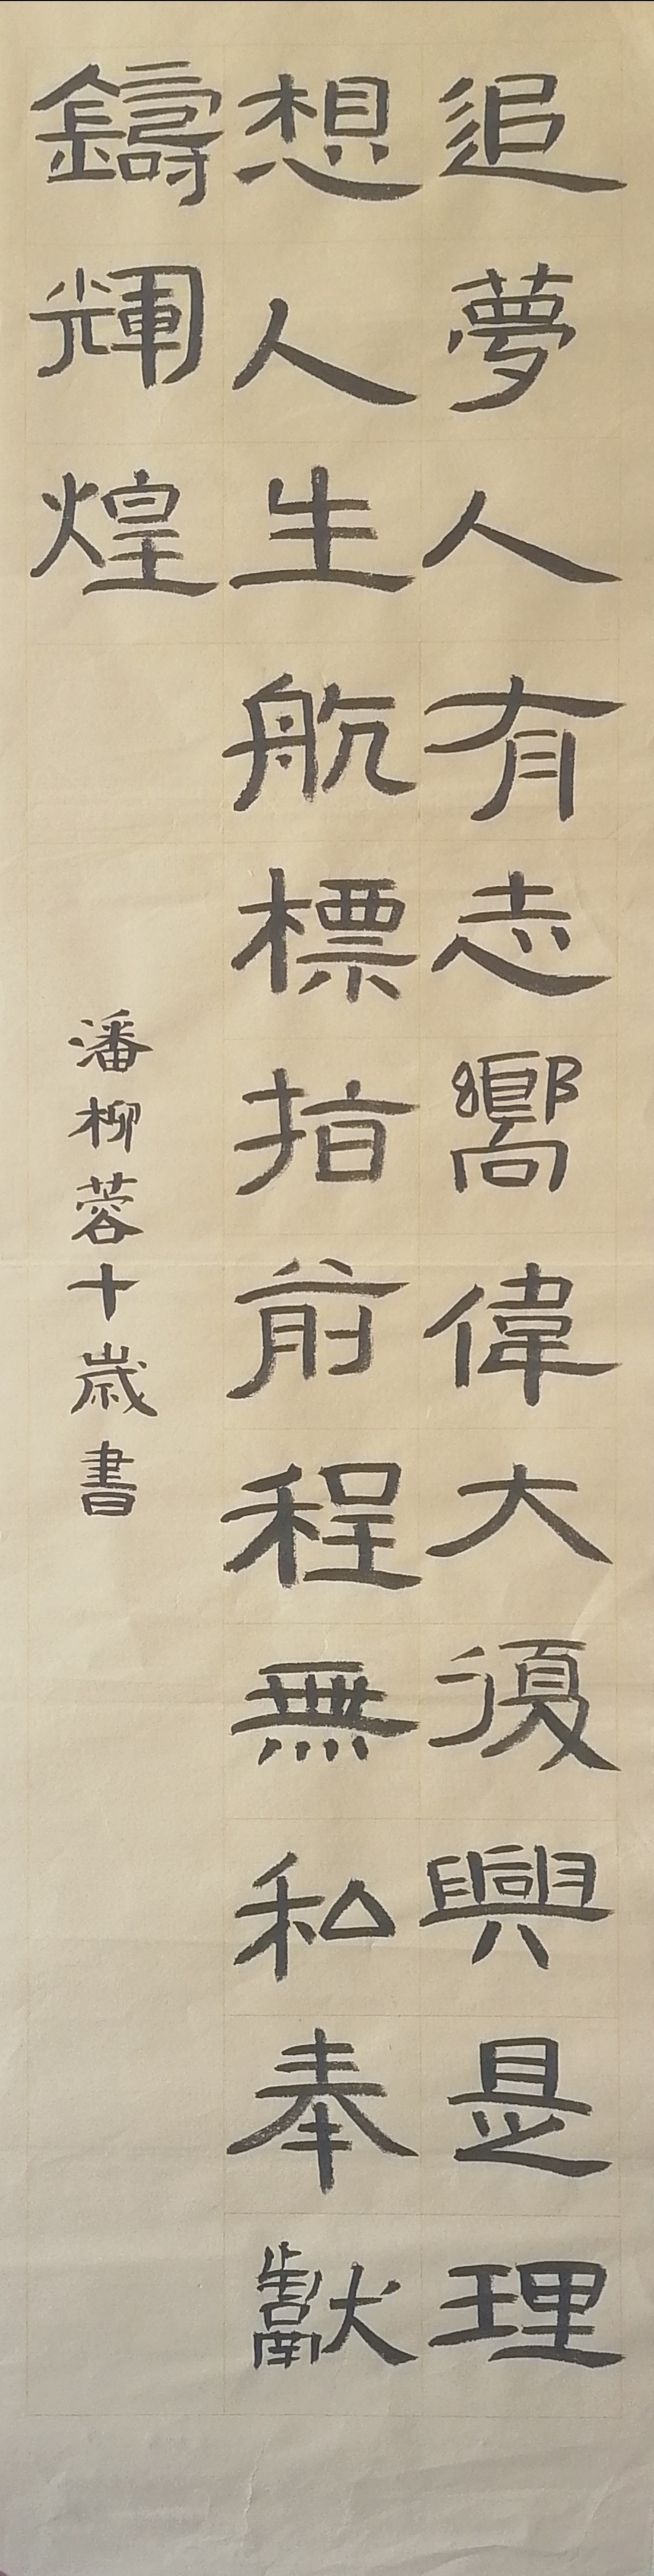 追夢人有志嚮偉大復興是理
想人生航標指前程無私奉獻
鑄輝煌
潘柳蓉十歲書